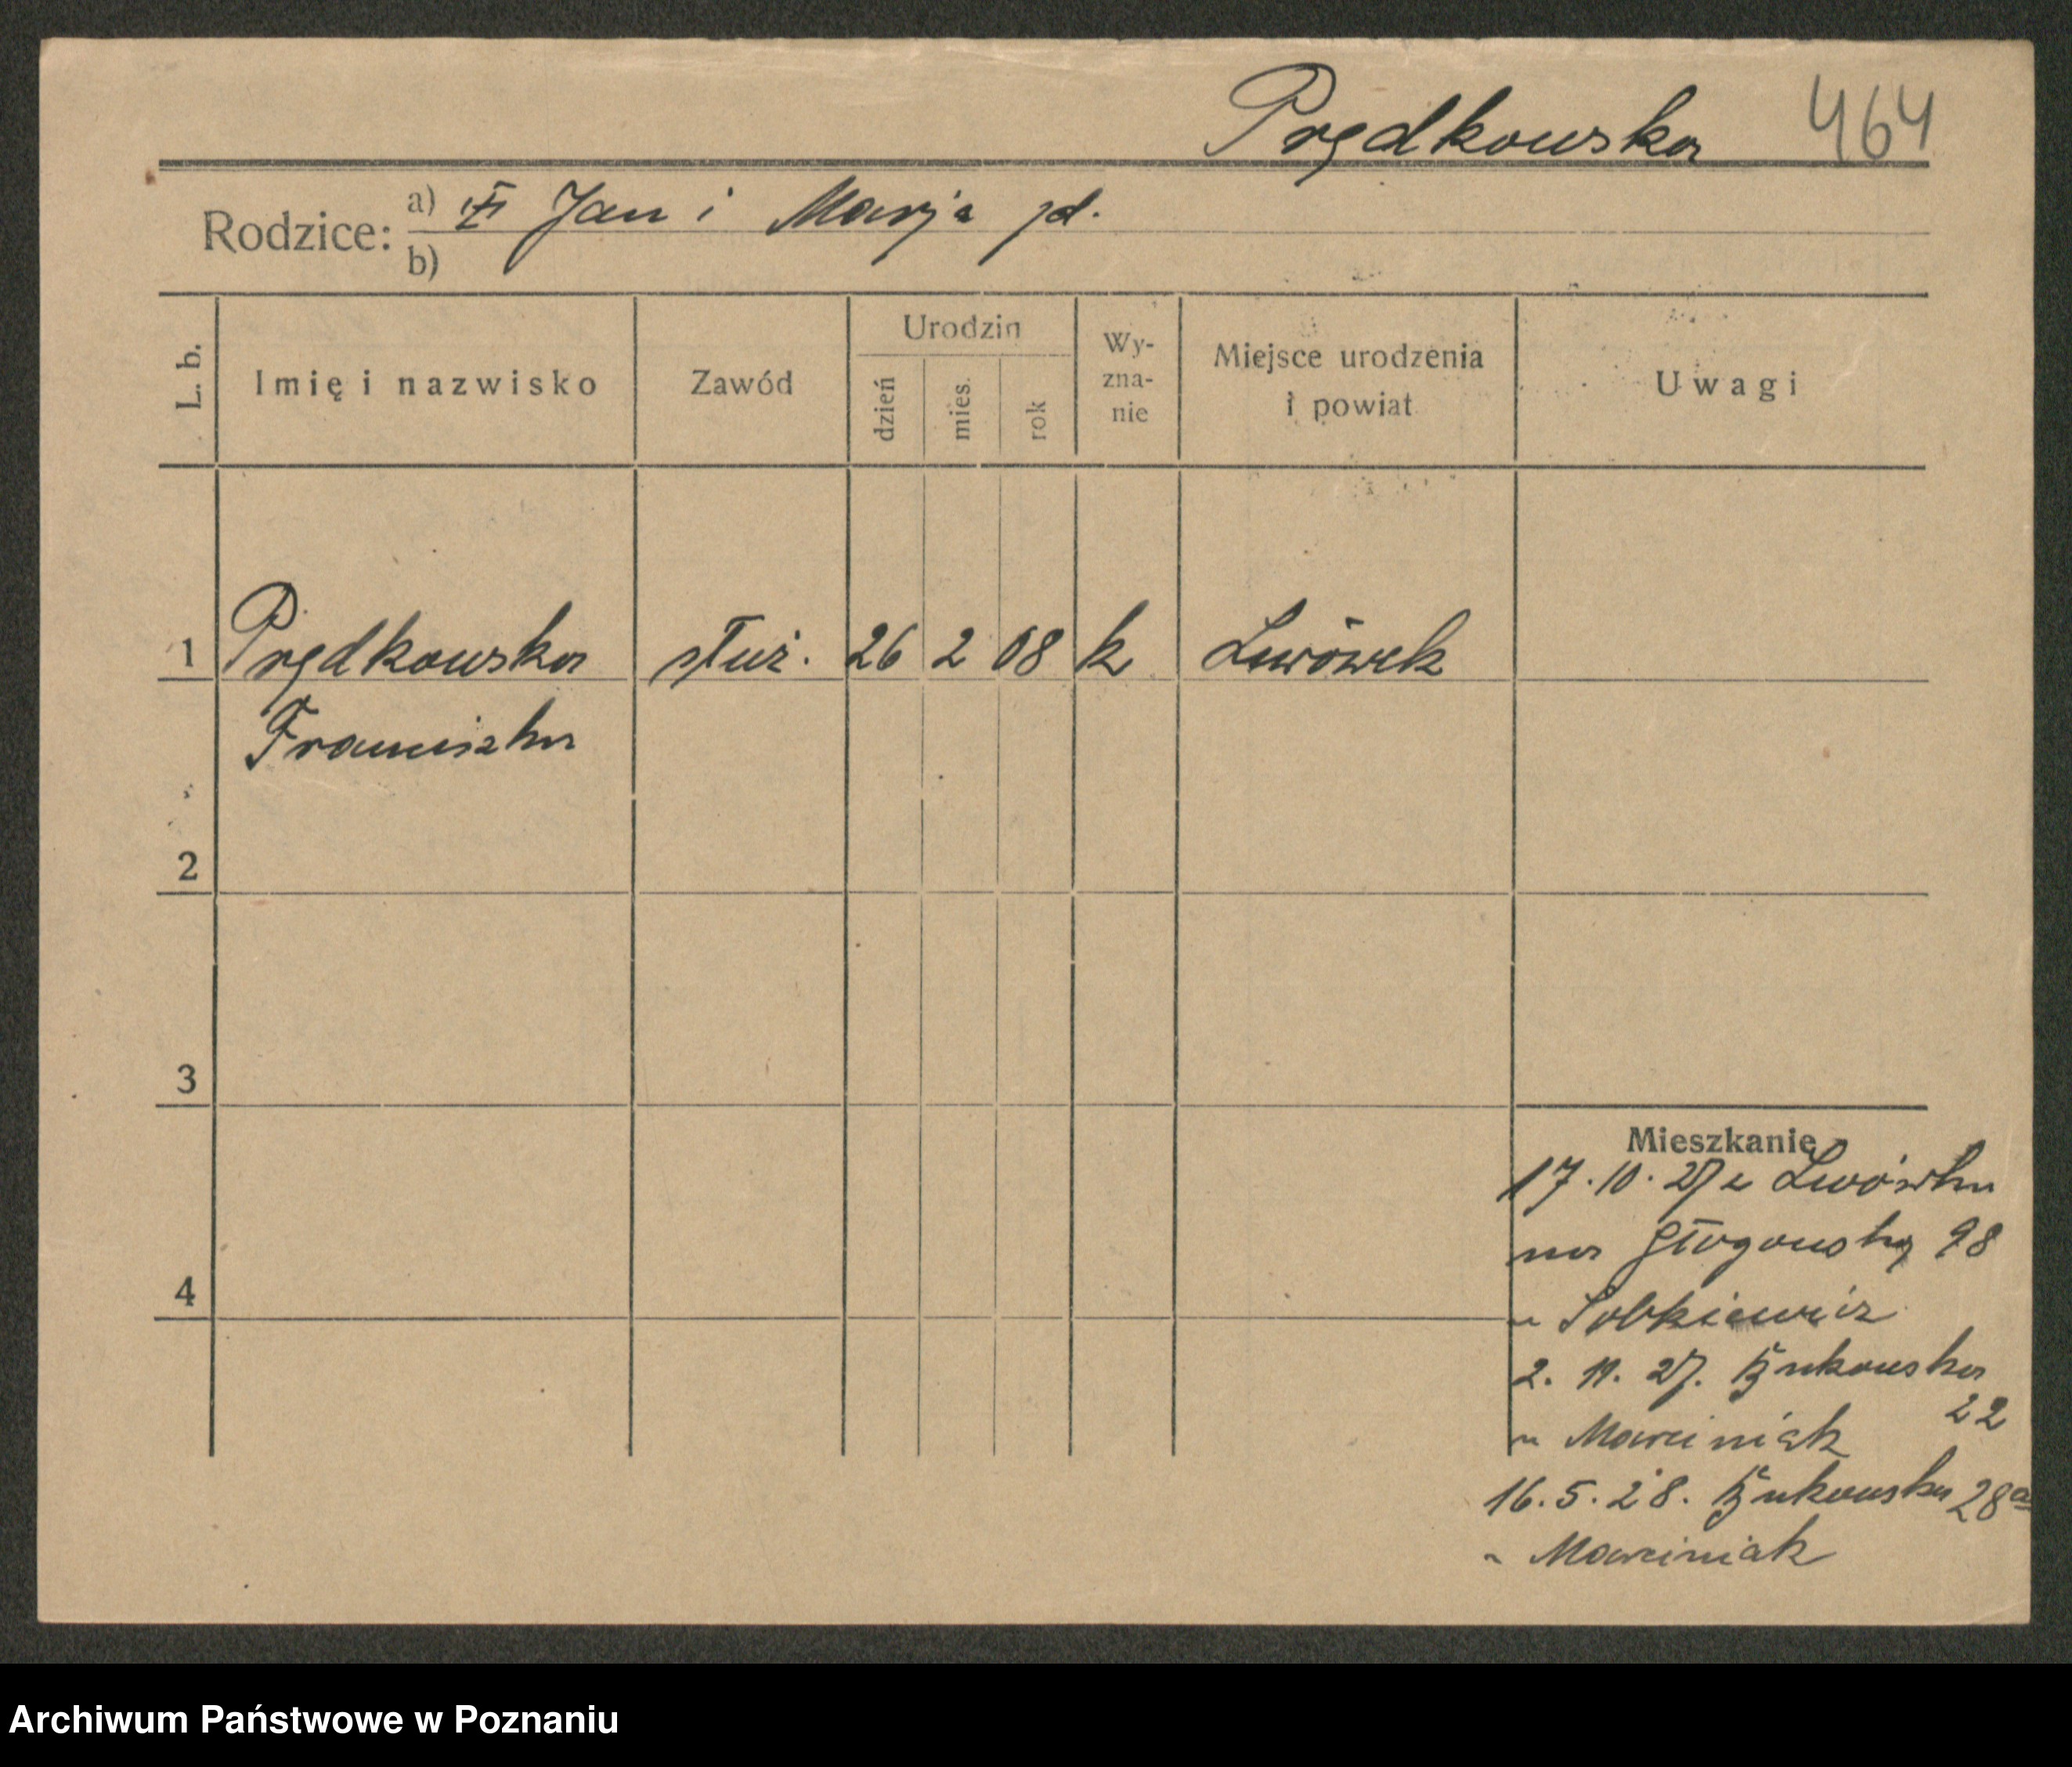 Prędkowska 464
Rodzice: a) Jan i Marja jd.
b)
L. b. Imię i nazwisko Zawód Urodzin dzień mies. rok Wyznanie Miejsce urodzenia i powiat Uwagi
1 Prędkowska służ. 26 2 08 k Lwówek
Franciszka
2
3
Mieszkanie
17. 10. 27 z Lwówka
na Głogowską 98
4
u Sobkiewicz
2. 11. 27. Bukowska
22
u Marciniak
16. 5. 28. Bukowska 28a
u Marciniak
Archiwum Państwowe w Poznaniu